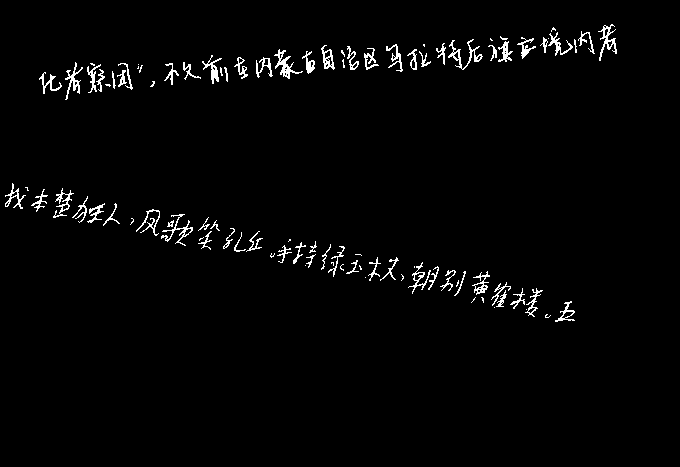 化考察团”,不久前在内蒙古自治区乌拉特后旗立境内考
我本楚狂人,凤歌笑孔丘。手持绿玉杖,朝别黄鹤楼。五